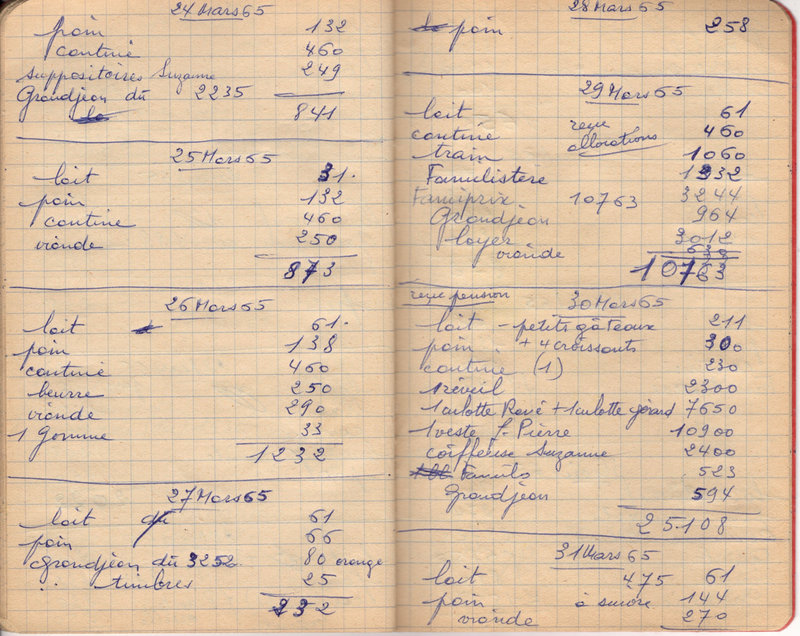 24 Mars 65
pain 132
cantine 460
suppositoires Suzanne 249
Grandjean dû 2235
841
25 Mars 65
lait 31.
pain 132
cantine 460
viande 250
873
26 Mars 65
lait 61.
pain 138
cantine 460
beurre 250
viande 290
1 gomme 33
1232
27 Mars 65
lait 61
pain 66
Grandjean dû 3252 80 orange
timbres 25
232
28 Mars 65
pain 258
29 Mars 65
lait 61
cantine reçu 460
train allocations 1060
Familistere 1332
Familiprix 10763 3244
Grandjean 964
loyer 3012
viande 630
10763
reçu pension 30 Mars 65
lait - petits gâteaux 211
pain + 4 croissants 300
cantine (1) 230
1 réveil 2300
1 culotte René + 1 culotte gérard 7650
1 veste J. Pierre 10900
coiffeuse Suzanne 2400
Famils 523
Grandjean 594
25.108
31 Mars 65
lait 475 61
pain à suivre 144
viande 270